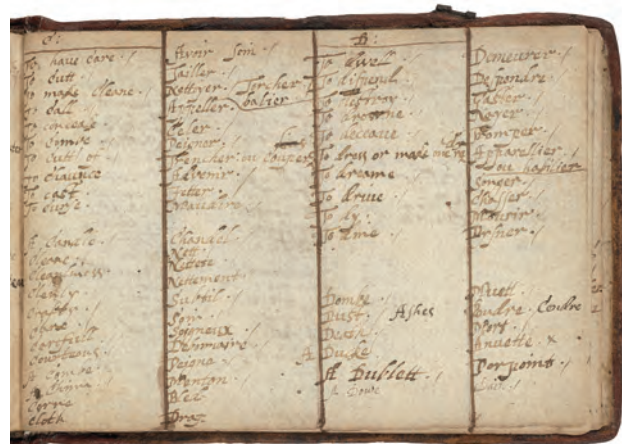 C:
To have Care ./
To cutt ./
To make Cleane ./
To call ./
To conceale ./
To combe ./
To cutt or ./
To chaunce ./
To cast ./
To curse ./
A Chandle ./
Cleane ./
Cleanliness ./
Clenly ./
Crafty ./
Care ./
Carefull ./
Courteous ./
A Combe ./
A Chinne ./
Corne
Cloth
Avoir Soin ./
Tailler ./
Nettoyer ./ Torcher
Appeller ./ balier ./
Celer ./
Peigner ./
Trencher ou Couper ./
Advenir ./
Jetter ./
Mauldire ./
Chandel ./
Nett ./
Nettete ./
Nettement ./
Subtil ./
Soin ./
Soigneux ./
Debonnaire ./
Peigne ./
Menton ./
Bled ./
Drap ./
D:
To dwel ./
To dispend ./
To destroy ./
To drowne ./
To deceave ./
To dress or make
To dreame ./
To drive ./
To dy ./
To dine ./
Dombe ./
Dust ./ Ashes
Death ./
A Ducke
A Dublett ./
A Dove
Demeurer ./
Despendre ./
Gaster ./
Noyer ./
Tromper ./
Apparellier ./
Songer ./
Chasser ./
Mourir ./
Disner ./
Muett ./
Poudre Cendre
Mort ./
Porpoint ./